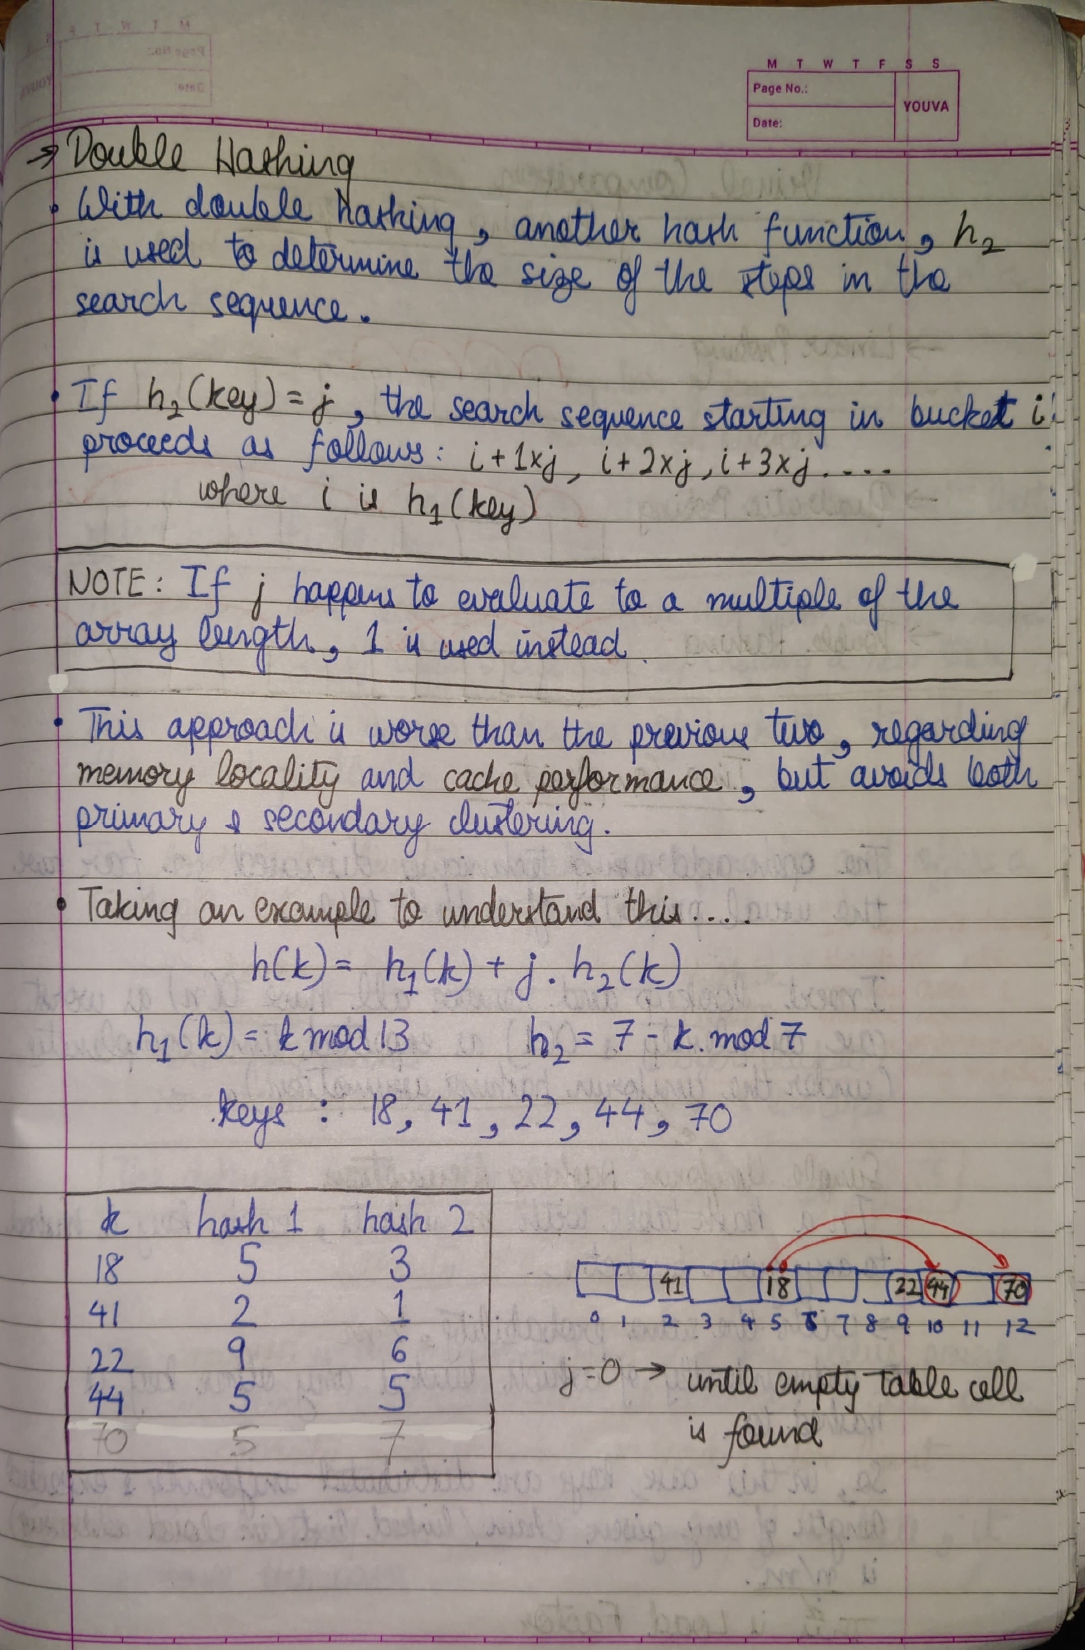 M T W T F S S
Page No.:
Date:
YOUVA
→ Double Hashing
• With double hashing, another hash function, h₂
is used to determine the size of the steps in the
search sequence.
• If h₂(key) = j, the search sequence starting in bucket i
proceeds as follows: i+1xj, i+2xj, i+3xj....
where i is h₁(key)
NOTE: If j happens to evaluate to a multiple of the
array length, 1 is used instead.
• This approach is worse than the previous two, regarding
memory locality and cache performance, but avoids both
primary & secondary clustering.
• Taking an example to understand this....
h(k) = h₁(k) + j . h₂(k)
h₁(k) = k mod 13 h₂ = 7 - k. mod 7
keys : 18, 41, 22, 44, 70
k hash 1 hash 2
18 5 3
41 2 1
22 9 6
44 5 5
70 5 7
41 18 22 44 70
0 1 2 3 4 5 6 7 8 9 10 11 12
j=0 → until empty table cell
is found